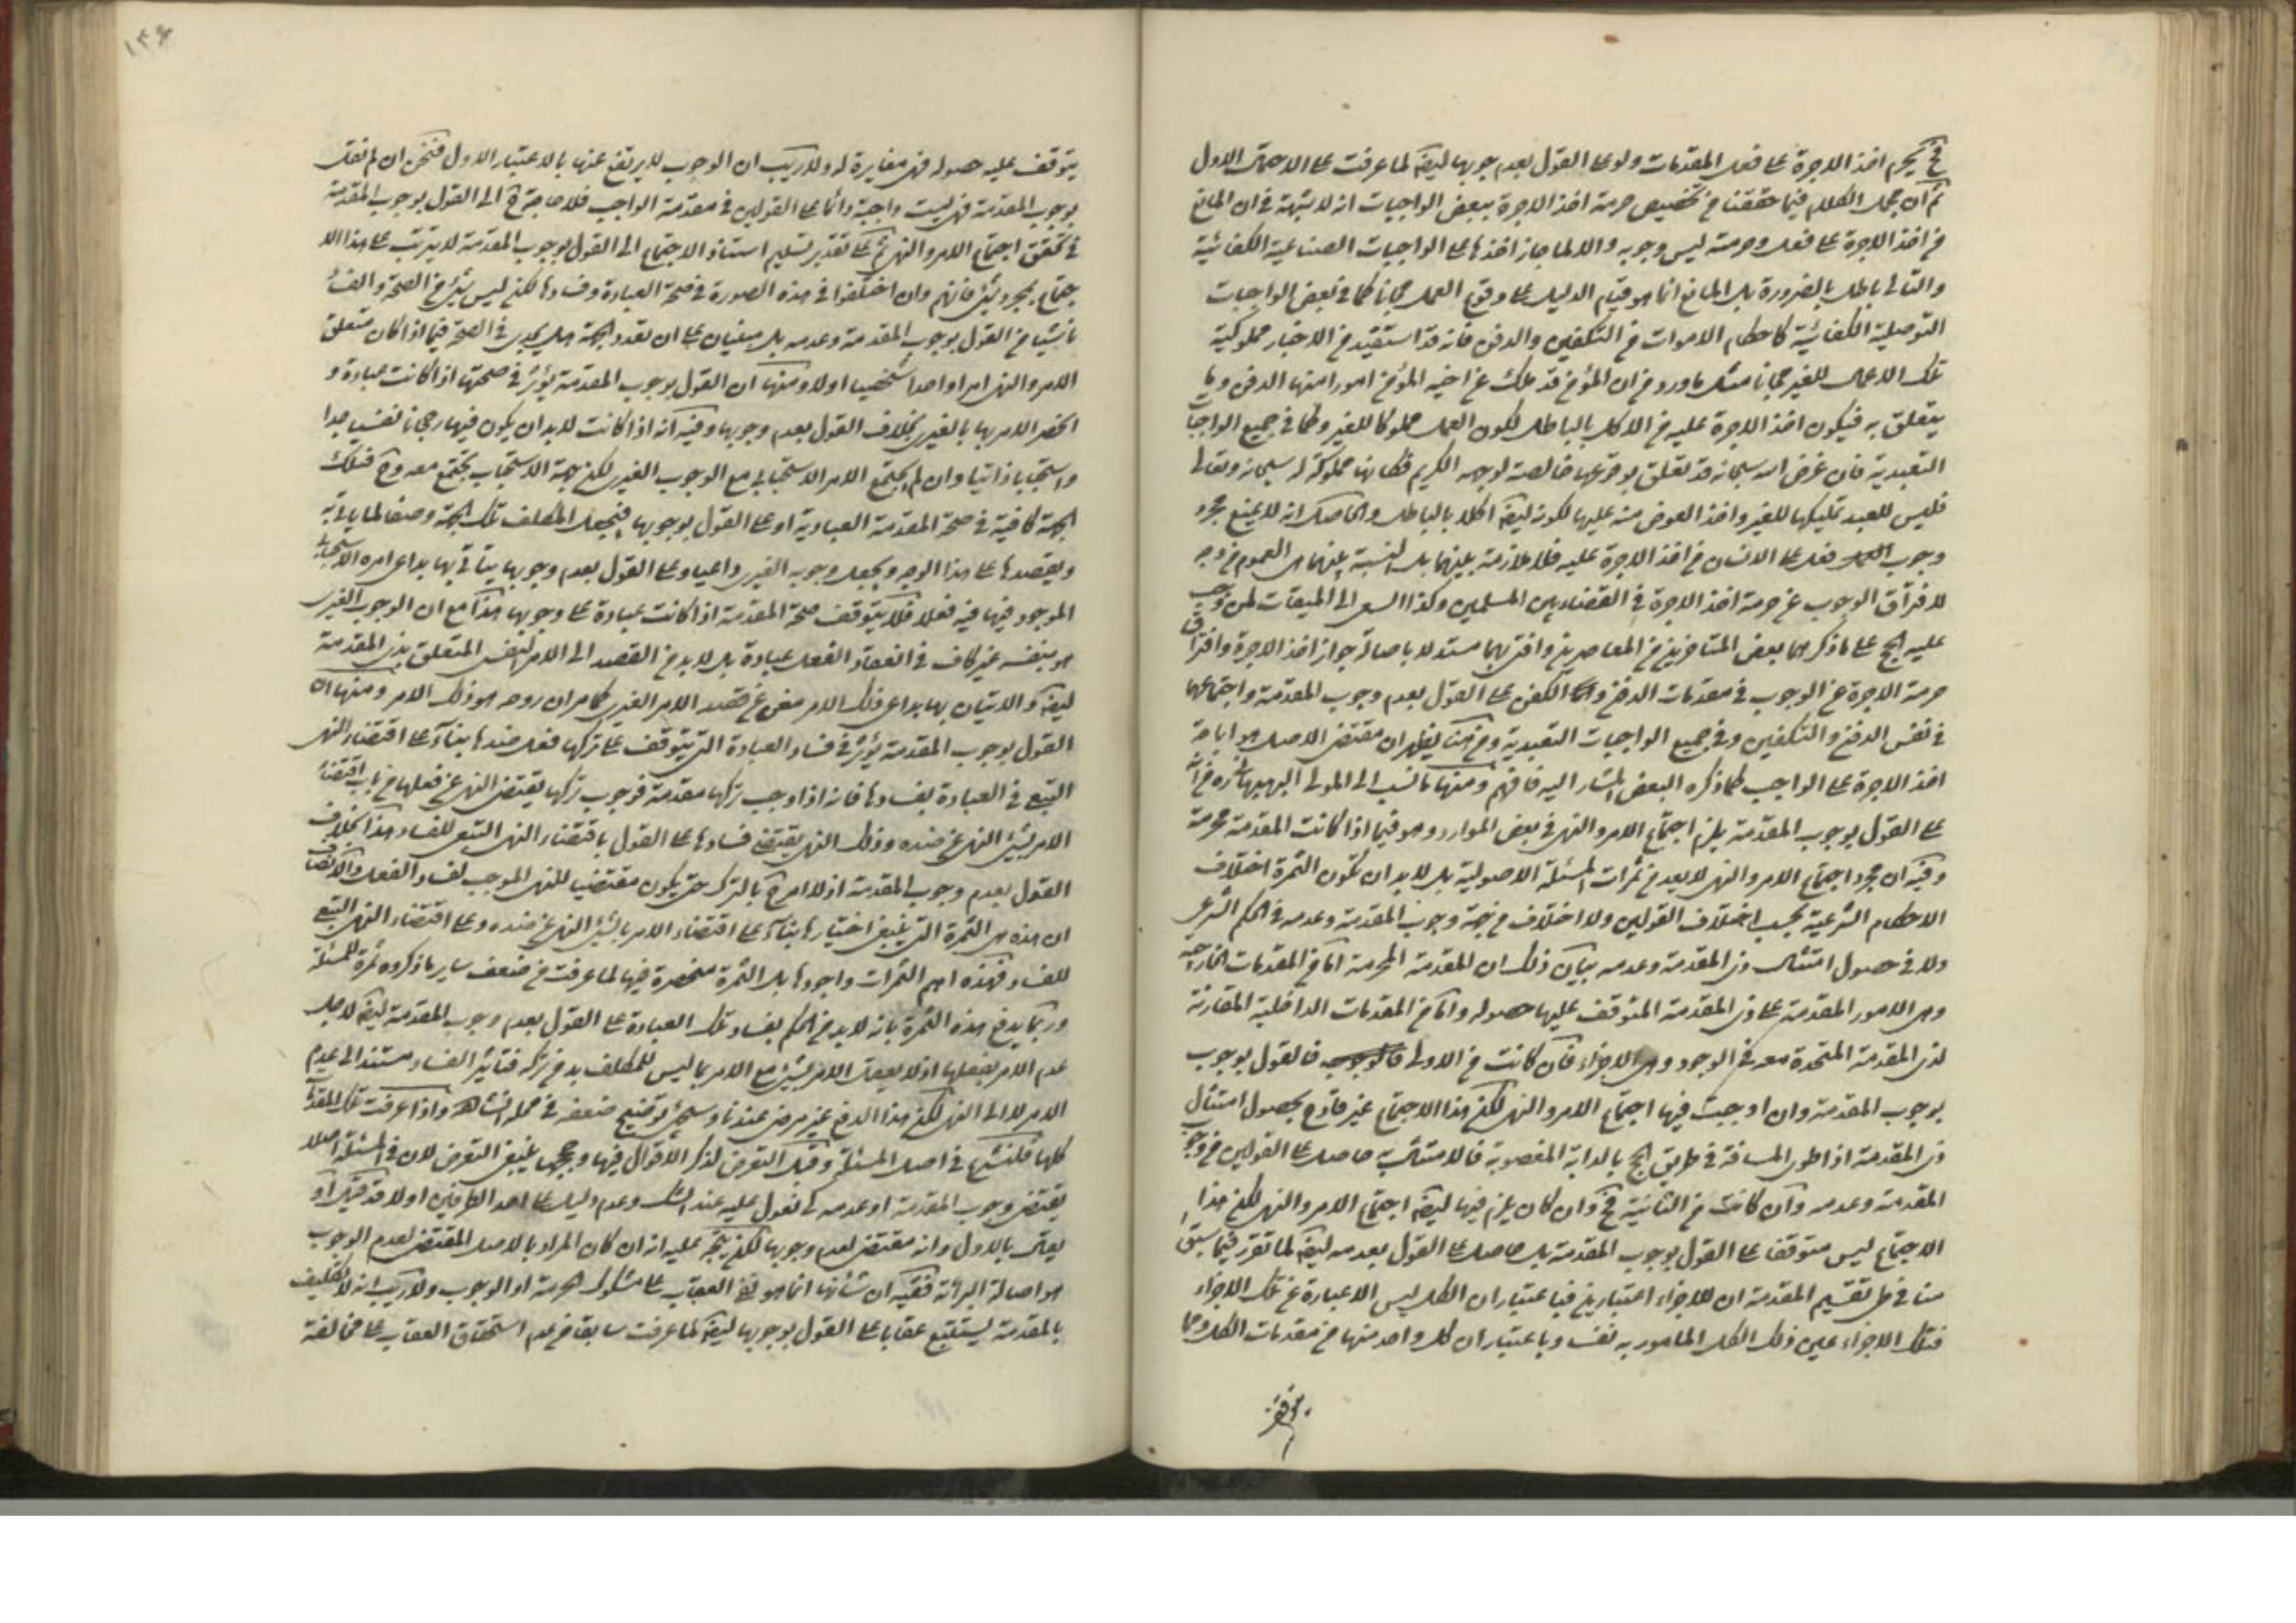 فح يحرم اخذ الاجرة على فعل المقدمات ولو على القول بعدم وجوبها ايضا لما عرفت على الاحتمال الاول
ثم ان مجمل الكلام فيما حققنا من تخصيص حرمة اخذ الاجرة ببعض الواجبات انه لا شبهة في ان المانع
من اخذ الاجرة على فعل وحرمته ليس وجوبه والا لما جاز اخذها على الواجبات الصناعية الكفائية
والتالي باطل بالضرورة بل المانع انما هو قيام الدليل على وقوع العمل مجانا كما في بعض الواجبات
التوصلية الكفائية كاحكام الاموات من التكفين والدفن فانه قد استفيد من الاخبار مملوكية
تلك الاعمال للغير مجانا مثل ما ورد من ان المؤمن قد ملك من اخيه المؤمن امورا منها الدفن وما
يتعلق به فيكون اخذ الاجرة عليه من الاكل بالباطل لكون العمل مملوكا للغير وكما في جميع الواجبات
التعبدية فان غرض الله سبحانه قد تعلق بوقوعها خالصة لوجهه الكريم فكانها مملوكة له سبحانه وتعالى
فليس للعبد تمليكها للغير واخذ العوض منه عليها لكونه ايضا اكلا بالباطل والحاصل انه لا يمنع مجرد
وجوب فعل على الانسان من اخذ الاجرة عليه فلا ملازمة بينهما بل النسبة بينهما هي العموم من وجه
لافتراق الوجوب عن حرمة اخذ الاجرة في القضاء بين المسلمين وكذا السعي الى الميقات لمن وجب
عليه الحج على ما ذكرهما بعض المتاخرين من المعاصرين وافتى بهما مستدلا باصالة جواز اخذ الاجرة وافتراق
حرمة الاجرة عن الوجوب في مقدمات الدفن والكفن على القول بعدم وجوب المقدمة واجتماعهما
في نفس الدفن والتكفين وفي جميع الواجبات التعبدية ومن هنا يظهر ان مقتضى الاصل هو اباحة
اخذ الاجرة على الواجب كما ذكره البعض المشار اليه فافهم ومنها ما نسب الى المولى البهبهاني ره من انه
على القول بوجوب المقدمة يلزم اجتماع الامر والنهي في بعض الموارد وهو فيما اذا كانت المقدمة محرمة
وفيه ان مجرد اجتماع الامر والنهي لا يعد من ثمرات المسئلة الاصولية بل لا بد ان تكون الثمرة اختلاف
الاحكام الشرعية بحسب اختلاف القولين ولا اختلاف من جهة وجوب المقدمة وعدمه في الحكم الشرعي
ولا في حصول امتثال ذي المقدمة وعدمه بيان ذلك ان المقدمة المحرمة اما من المقدمات الخارجية
وهي الامور المقدمة على ذي المقدمة المتوقف عليها حصوله واما من المقدمات الداخلية المقارنة
لذي المقدمة المتحدة معه في الوجود وهي الاجزاء فان كانت من الاولى فالقول بوجوب
بوجوب المقدمة وان اوجبت فيها اجتماع الامر والنهي لكن هذا الاجتماع غير قادح بحصول امتثال
ذي المقدمة اذا طوى المسافة في طريق الحج بالدابة المغصوبة فالامتثال به حاصل على القولين من وجوب
المقدمة وعدمه وان كانت من الثانية فح وان كان يلزم فيها ايضا اجتماع الامر والنهي لكن هذا
الاجتماع ليس متوقفا على القول بوجوب المقدمة بل حاصل على القول بعدمه ايضا لما تقرر فيما سبق
منا في طي تقسيم المقدمة ان للاجزاء اعتبارين فباعتبار ان الكل ليس الا عبارة عن تلك الاجزاء
فتلك الاجزاء عين ذلك الكل المامور به نفسه وباعتبار ان كل واحد منها من مقدمات الكل ومما
يتوقف عليه حصوله فهي مغايرة له ولا ريب ان الوجوب لا يرتفع عنها بالاعتبار الاول فنحن ان لم نقل
بوجوب المقدمة فهي ليست واجبة دائما على القولين في مقدمة الواجب فلا حاجة ح الى القول بوجوب المقدمة
في تحقق اجتماع الامر والنهي ثم على تقدير تسليم استناد الاجتماع الى القول بوجوب المقدمة لا يترتب على هذا الا
جتماع بمجرده شيئ فانهم وان اختلفوا في هذه الصورة في صحة العبادة وفسادها لكن ليس شيئ من الصحة والفساد
ناشيا من القول بوجوب المقدمة وعدمه بل مبنيان على ان تعدد الجهة هل يجدي في الصحة فيما اذا كان متعلق
الامر والنهي امرا واحدا شخصيا اولا ومنها ان القول بوجوب المقدمة يؤثر في صحتها اذا كانت عبادة و
انحصر الامر بها بالغيري بخلاف القول بعدم وجوبها وفيه انه اذا كانت لا بد ان يكون فيها رجحانا نفسيا جدا
واستحبابا ذاتيا وان لم يجتمع الامر الاستحبابي مع الوجوب الغيري لكن جهة الاستحباب يجتمع معه وح فتلك
الجهة كافية في صحة المقدمة العبادية او على القول بوجوبها فيجعل المكلف تلك الجهة وصفا لما ياتي به
ويقصدها على هذا الوجه ويجعل وجوبه الغيري داعيا وعلى القول بعدم وجوبها ياتي بها بداعي امره الاستحبابي
الموجود فيها فيه فعلا فلا يتوقف صحة المقدمة اذا كانت عبادة على وجوبها هذا مع ان الوجوب الغيري
هو بنفسه غير كاف في انعقاد الفعل عبادة بل لا بد من القصد الى الامر النفسي المتعلق بذي المقدمة
ايضا والاتيان بها بداعي ذلك الامر مغن عن قصد الامر الغيري كما مر ان روحه هو ذلك الامر ومنها ان
القول بوجوب المقدمة يؤثر في فساد العبادة التي يتوقف على تركها فعل ضدها بناء على اقتضاء النهي
التبعي في العبادة بفسادها فانه اذا وجب تركها مقدمة فوجوب تركها يقتضي النهي عن فعلها من باب اقتضاء
الامر بشيئ النهي عن ضده وذلك النهي يقتضي فسادها على القول باقتضاء النهي التبعي للفساد هذا بخلاف
القول بعدم وجوب المقدمة اذ لا امر ح بالترك حتى يكون مقتضيا للنهي الموجب لفساد الفعل والانصاف
ان هذه هي الثمرة التي ينبغي اختيارها بناء على اقتضاء الامر بالشيئ النهي عن ضده وعلى اقتضاء النهي التبعي
للفساد فهذه اهم الثمرات واجودها بل الثمرة منحصرة فيها لما عرفت من ضعف ساير ما ذكروه ثمرة للمسئلة
وربما يدفع هذه الثمرة بانه لا بد من الحكم بفساد تلك العبادة على القول بعدم وجوب المقدمة ايضا لاجل
عدم الامر بفعلها اذ لا يعقل الامر بشيئ مع الامر بما ليس للمكلف بد من تركه فتاثير الفساد مستند الى عدم
الامر لا الى النهي لكن هذا الدفع غير مرضي عندنا وسيجيئ توضيح ضعفه في محله انشاء الله واذا عرفت تلك المقدمات
كلها فلنشرع في اصل المسئلة وقبل التعرض لذكر الاقوال فيها وحججها ينبغي التعرض لان في المسئلة اصلا
يقتضي وجوب المقدمة او عدمه كي نعول عليه عند الشك وعدم دليل على احد الطرفين اولا قد قيل او
يقال بالاول وانه مقتضى لعدم وجوبها لكن يتجه عليه انه ان كان المراد بالاصل المقتضي لعدم الوجوب
هو اصالة البرائة ففيه ان شانها انما هو نفي العقاب على مشكوك الحرمة او الوجوب ولا ريب انه لا تكليف
بالمقدمة يستتبع عقابا على القول بوجوبها ايضا لما عرفت سابقا من عدم استحقاق العقاب على مخالفة